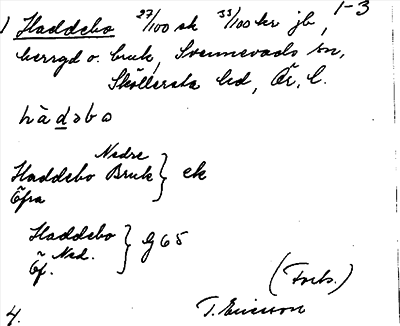 1) Haddebo 27/100 sk 33/100 kr jb, 1-3
herrgd o. bruk, Svennevads sn,
Sköllersta hd, Ör. l.
hàdəbo
Nedre
Haddebo Bruk } ek
Öfra
Haddebo
Öf. Ned. } G65
(Forts.)
4. T. Ericsson